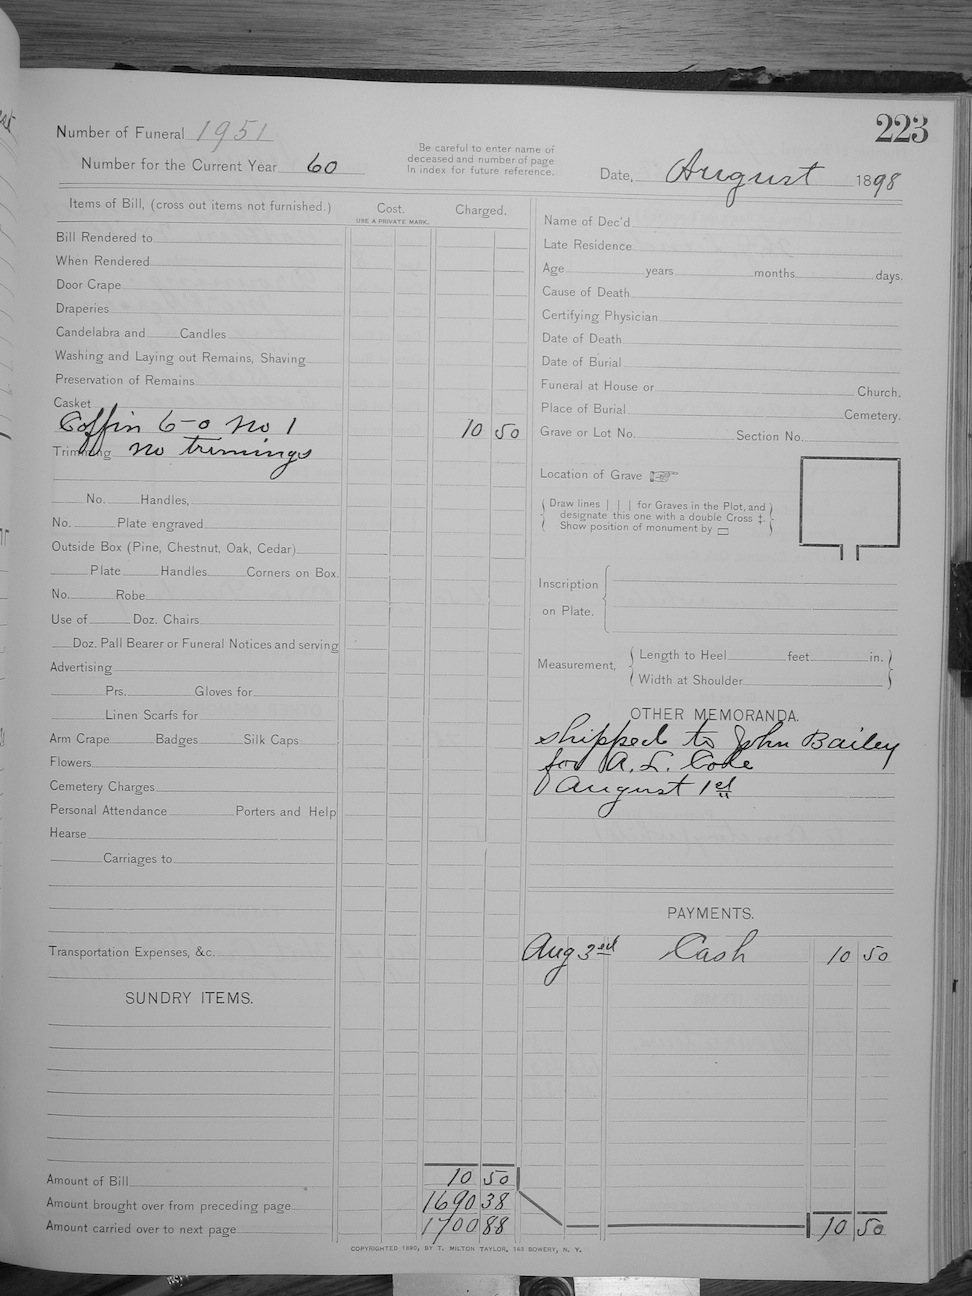 223
Number of Funeral 1951
Number for the Current Year 60
Be careful to enter name of
deceased and number of page
in index for future reference.
Date, August 1898
Items of Bill, (cross out items not furnished.)
Cost.
USE A PRIVATE MARK.
Charged.
Bill Rendered to
When Rendered
Door Crape
Draperies
Candelabra and Candles
Washing and Laying out Remains, Shaving
Preservation of Remains
Casket
Coffin 6-0 No 1 10 50
Trimming no trimings
No. Handles,
No. Plate engraved
Outside Box (Pine, Chestnut, Oak, Cedar)
Plate Handles Corners on Box.
No. Robe
Use of Doz. Chairs
Doz. Pall Bearer or Funeral Notices and serving
Advertising
Prs. Gloves for
Linen Scarfs for
Arm Crape Badges Silk Caps
Flowers
Cemetery Charges
Personal Attendance Porters and Help
Hearse
Carriages to
Transportation Expenses, &c.
SUNDRY ITEMS.
Amount of Bill 10 50
Amount brought over from preceding page 1690 38
Amount carried over to next page 1700 88
Name of Dec'd
Late Residence
Age years months days.
Cause of Death
Certifying Physician
Date of Death
Date of Burial
Funeral at House or Church.
Place of Burial Cemetery.
Grave or Lot No. Section No.
Location of Grave
Draw lines | | | for Graves in the Plot, and
designate this one with a double Cross ‡
Show position of monument by □
Inscription
on Plate.
Measurement,
Length to Heel feet in.
Width at Shoulder
OTHER MEMORANDA.
shipped to John Bailey
for A. L. Cole
August 1st
PAYMENTS.
Aug 3rd Cash 10 50
10 50
COPYRIGHTED 1890, BY T. MILTON TAYLOR, 163 BOWERY, N. Y.